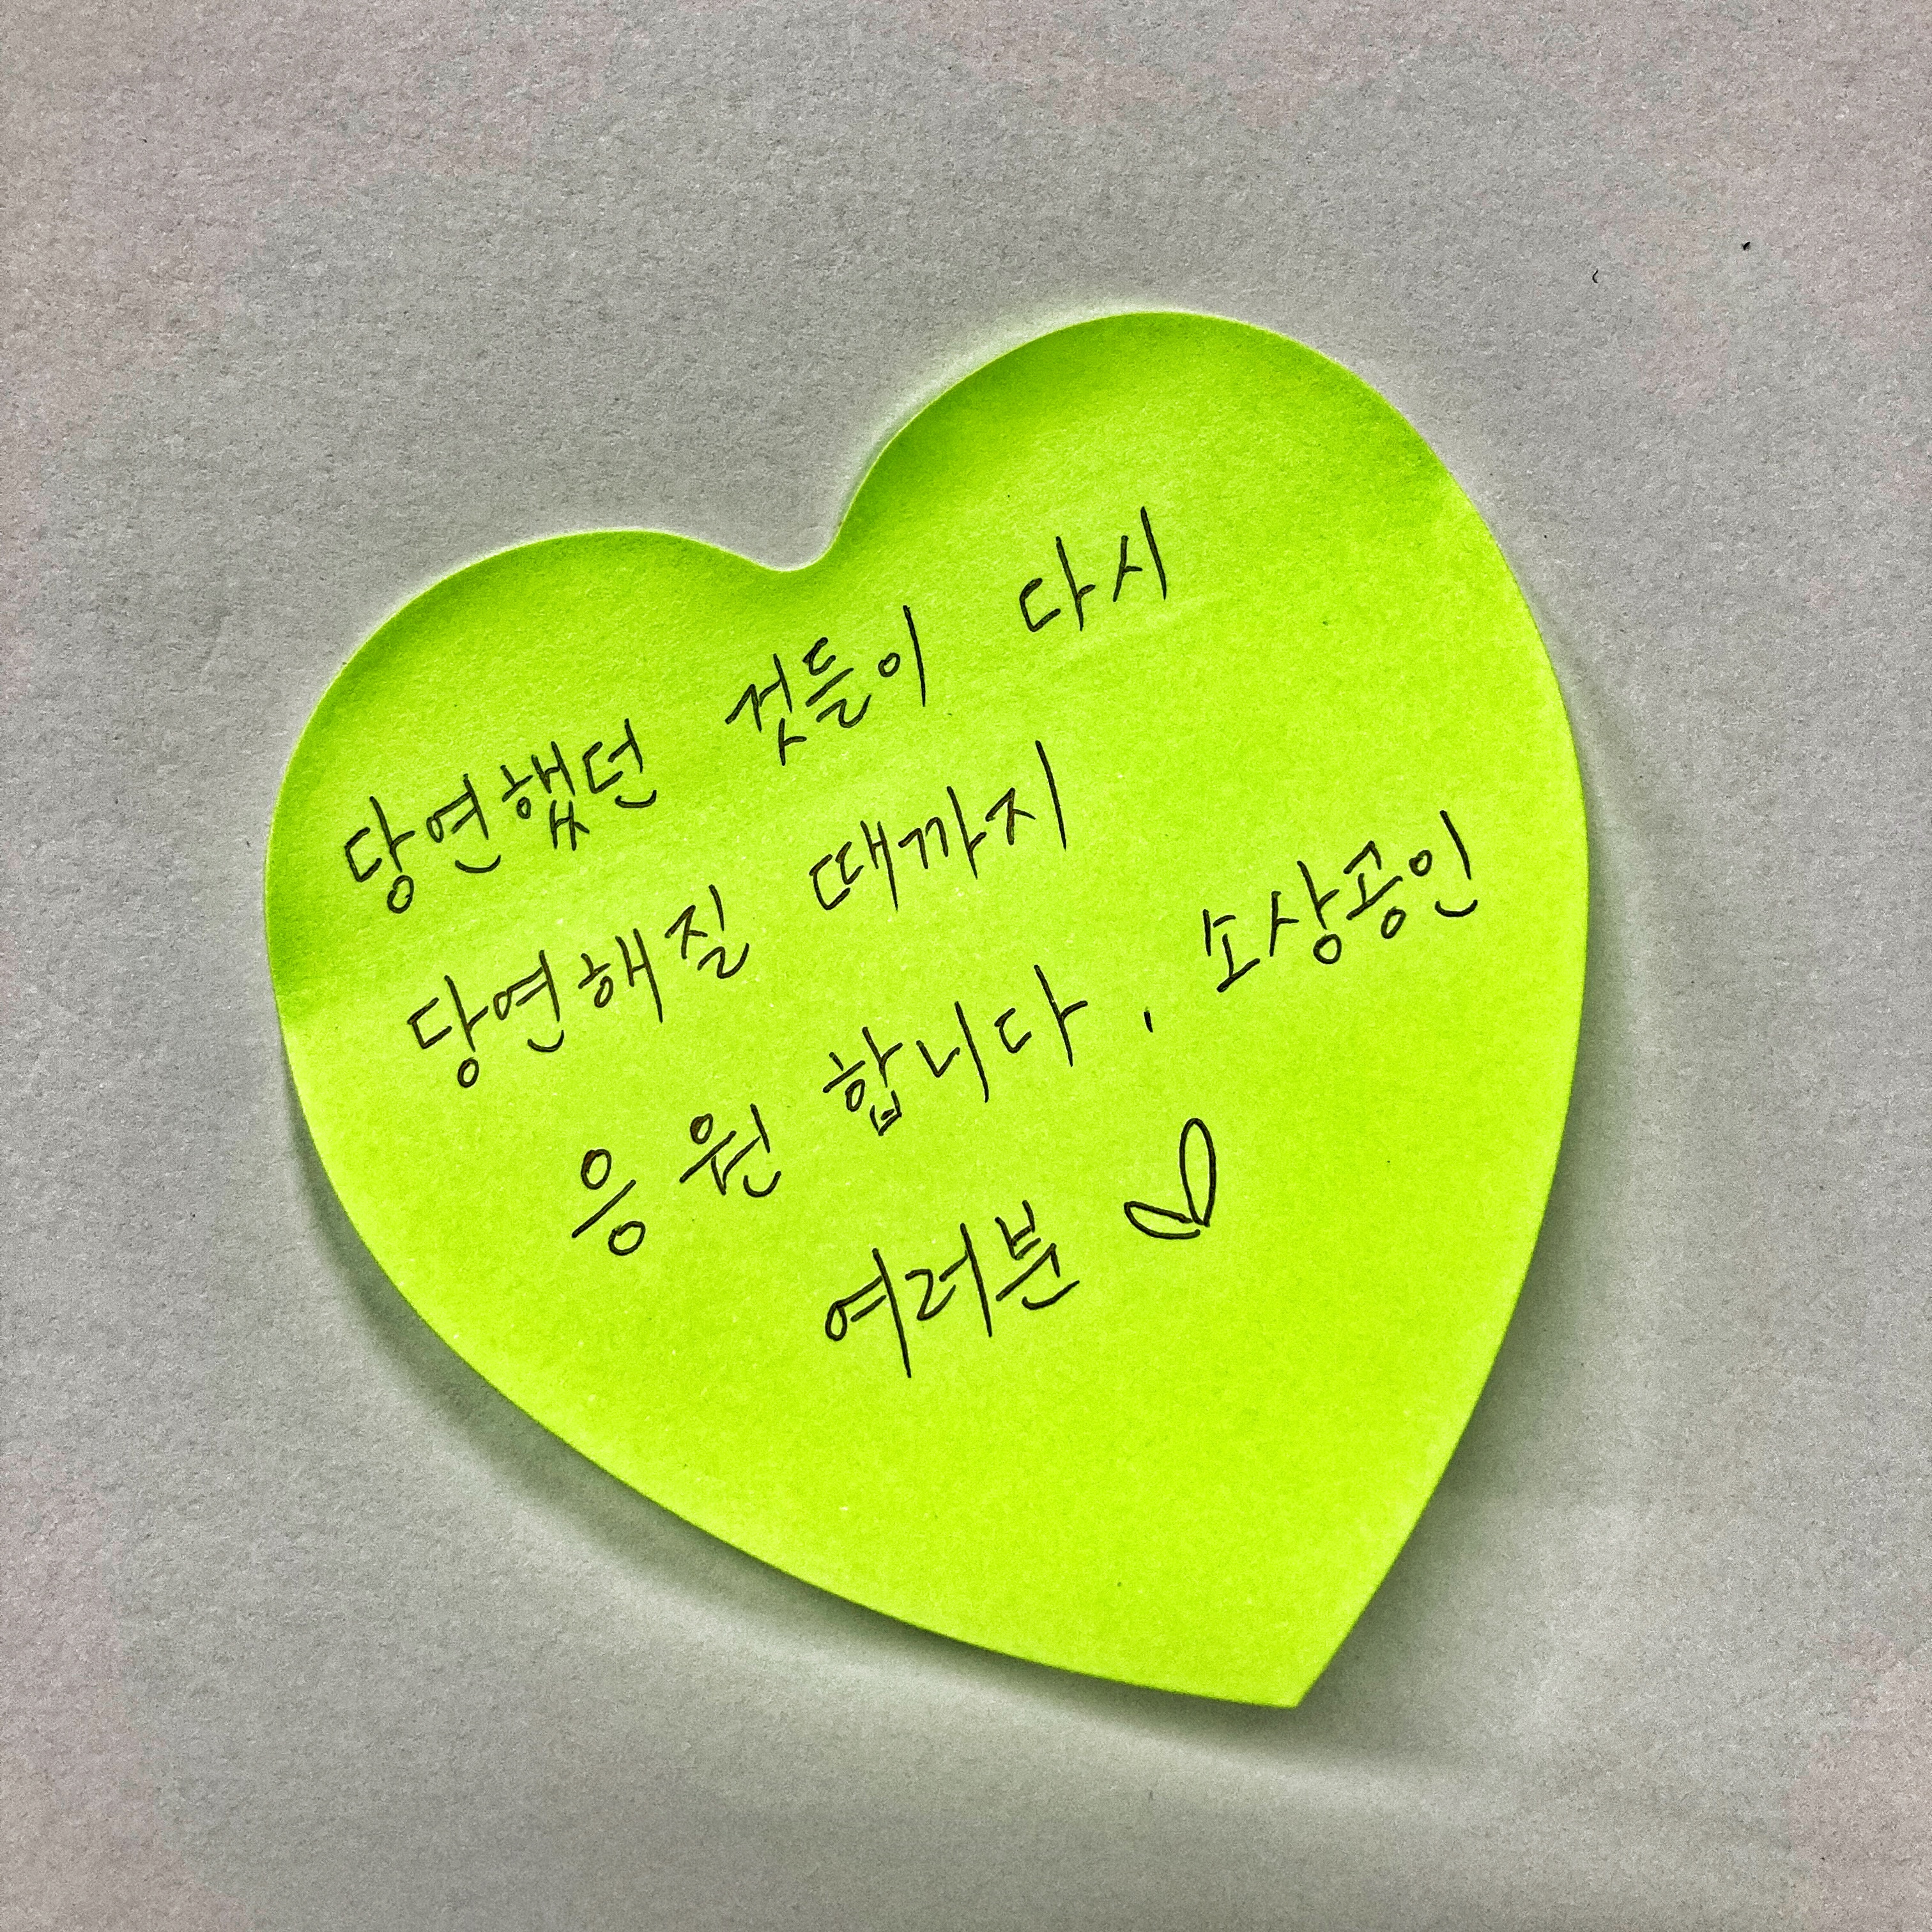 당연했던 것들이 다시
당연해질 때까지
응원합니다. 소상공인
여러분